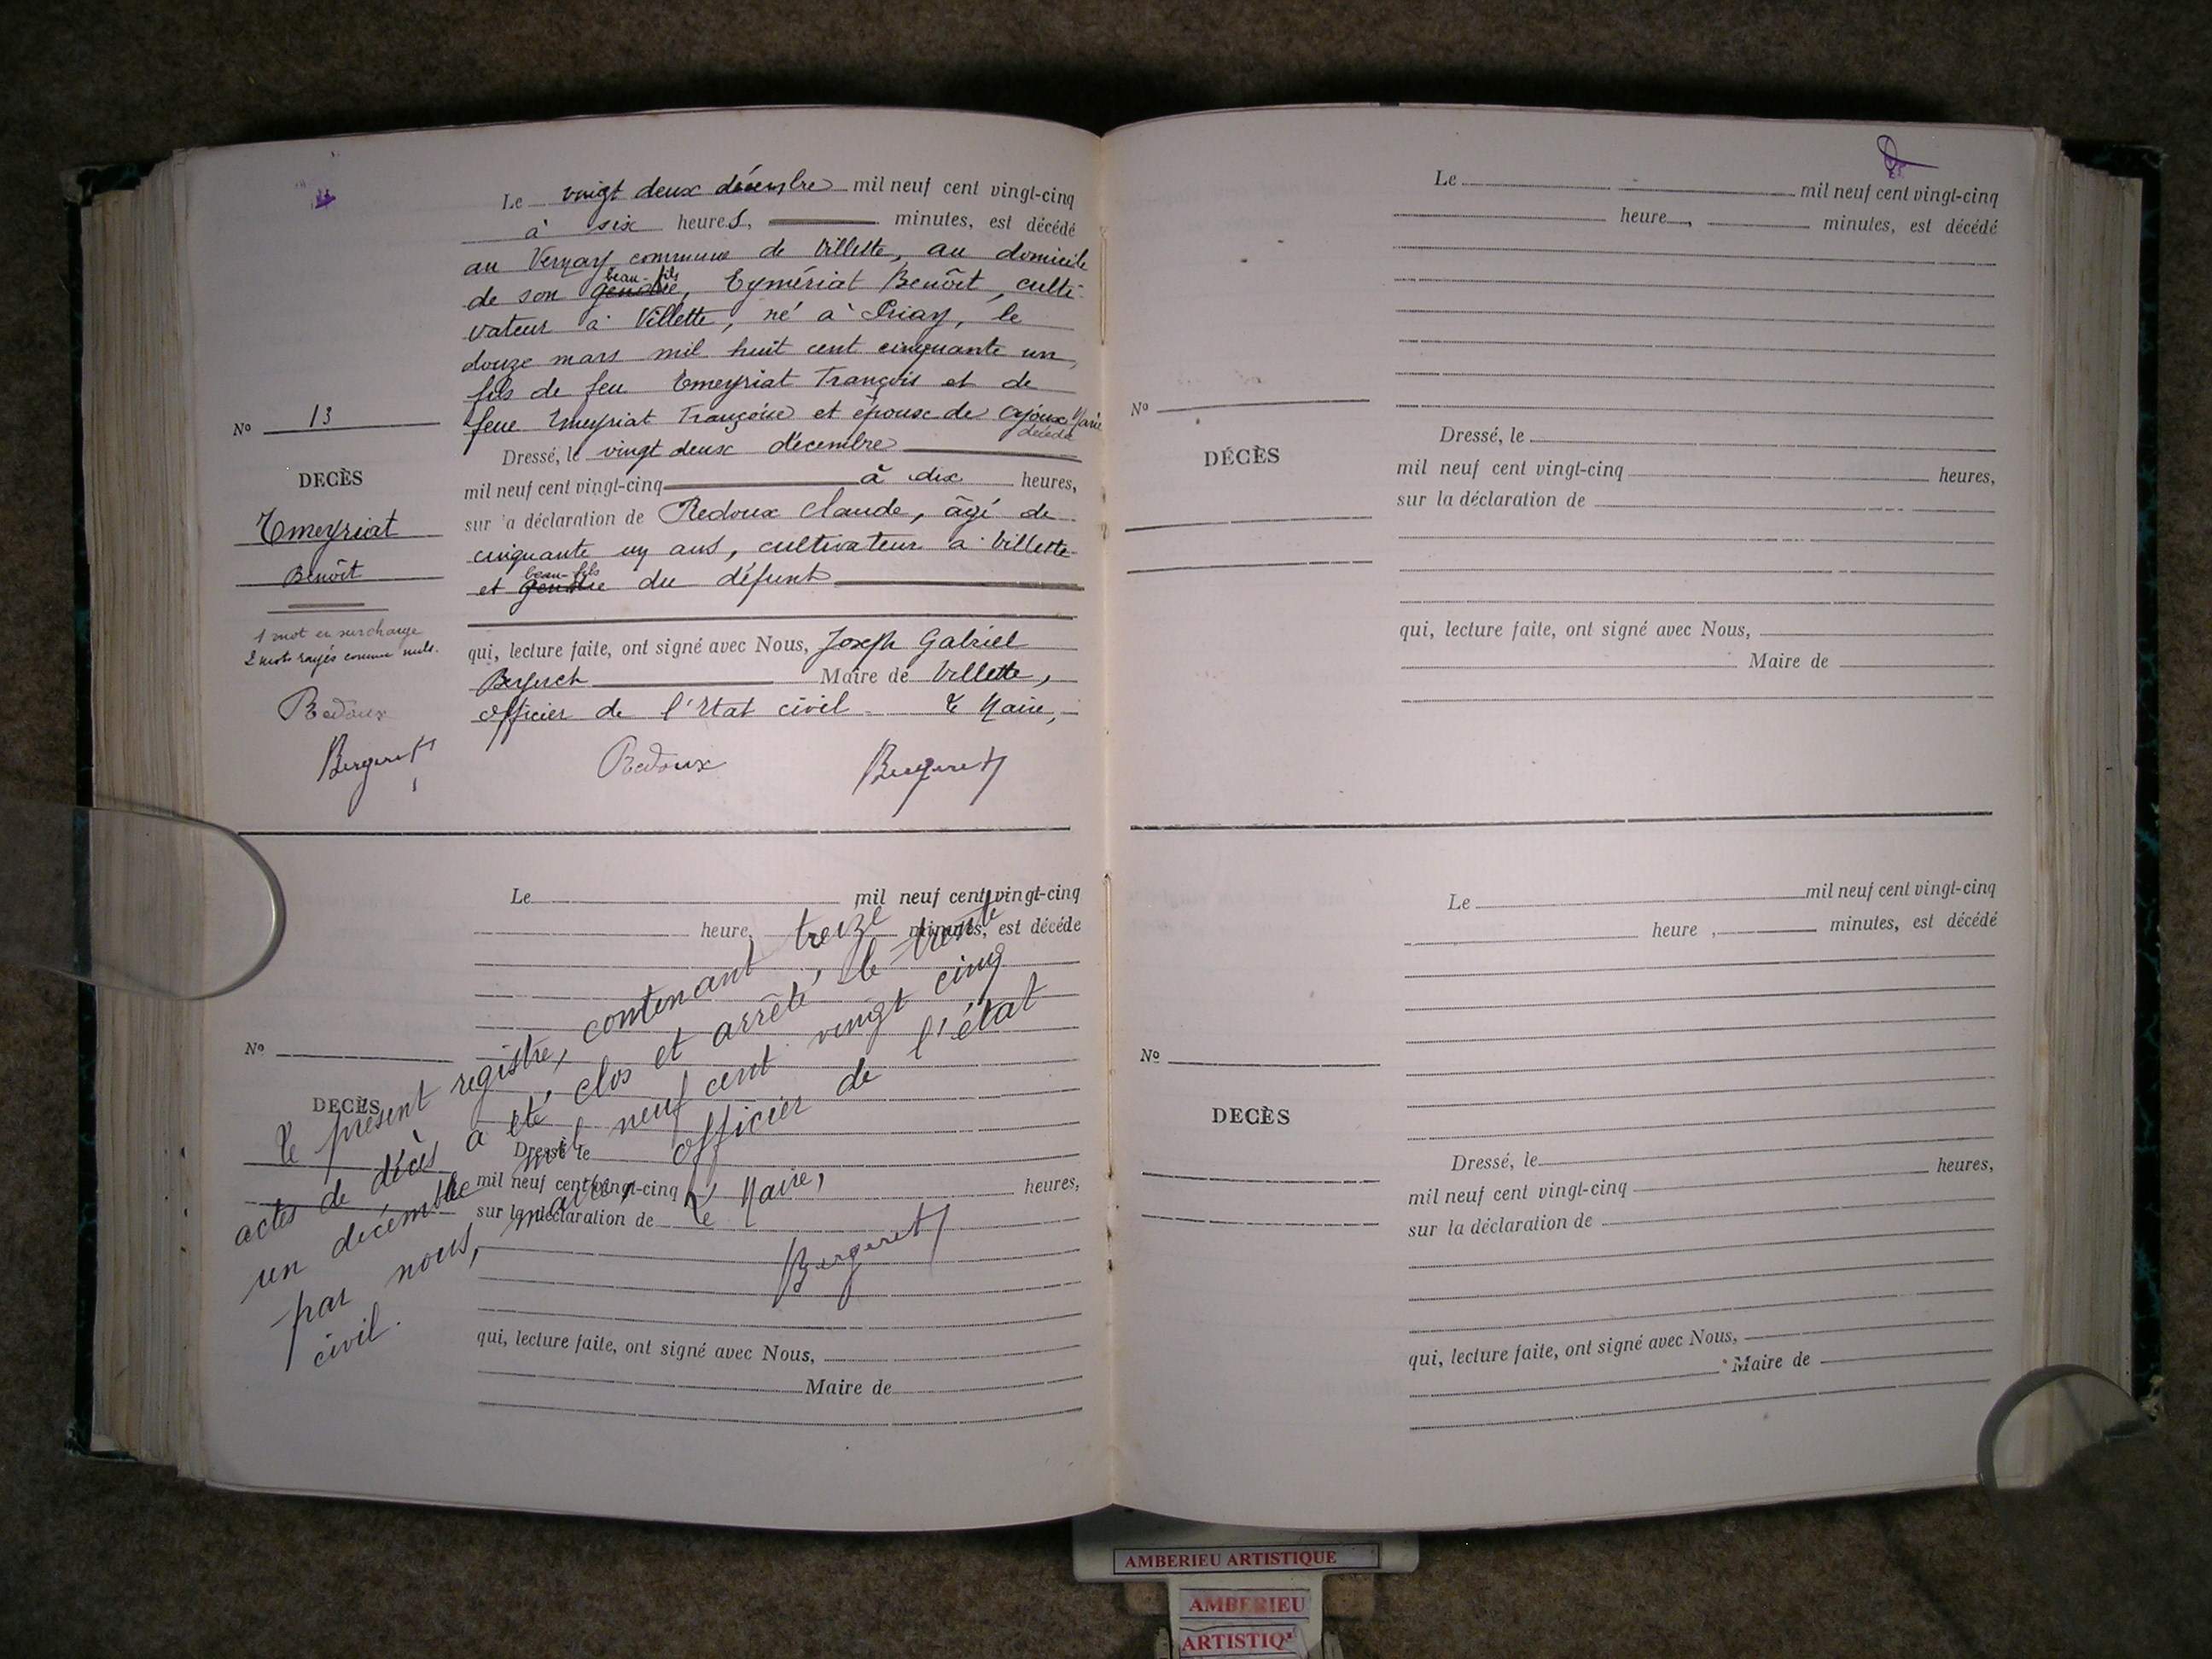 Le vingt deux décembre mil neuf cent vingt-cinq
à six heures, minutes, est décédé
au Vernay commune de Villette, au domicile
beau-fils
de son gendre, Eymériat Benôit, culti-
vateur à Villette, né à Priay, le
douze mars mil huit cent cinquante un,
fils de feu Emeyriat François et de
feue Emeyriat Françoise et époux de Cajoux Marie
décédée
Dressé, le vingt deux décembre
mil neuf cent vingt-cinq à dix heures,
sur la déclaration de Redoux Claude, âgé de
cinquante un ans, cultivateur à Villette
beau-fils
et gendre du défunt
qui, lecture faite, ont signé avec Nous, Joseph Gabriel
Bergeret Maire de Villette,
officier de l'Etat civil Le Maire,
Redoux Bergeret
No 13
DECÈS
Emeyriat
Benôit
1 mot en surcharge
2 mots rayés comme nuls.
Redoux
Bergeret
Le mil neuf cent vingt-cinq
heure, minutes, est décédé
No
DECÈS
Dressé le
mil neuf cent vingt-cinq heures,
sur la déclaration de
qui, lecture faite, ont signé avec Nous,
Maire de
Le présent registre, contenant treize
actes de décès a été clos et arrêté, le trente
un décembre mil neuf cent vingt cinq
par nous, maire, officier de l'état
civil.
Le Maire,
Bergeret
Le mil neuf cent vingt-cinq
heure, minutes, est décédé
No
DÉCÈS
Dressé, le
mil neuf cent vingt-cinq heures,
sur la déclaration de
qui, lecture faite, ont signé avec Nous,
Maire de
Le mil neuf cent vingt-cinq
heure , minutes, est décédé
No
DECÈS
Dressé, le
mil neuf cent vingt-cinq heures,
sur la déclaration de
qui, lecture faite, ont signé avec Nous,
Maire de
AMBERIEU ARTISTIQUE
AMBERIEU
ARTISTIQ